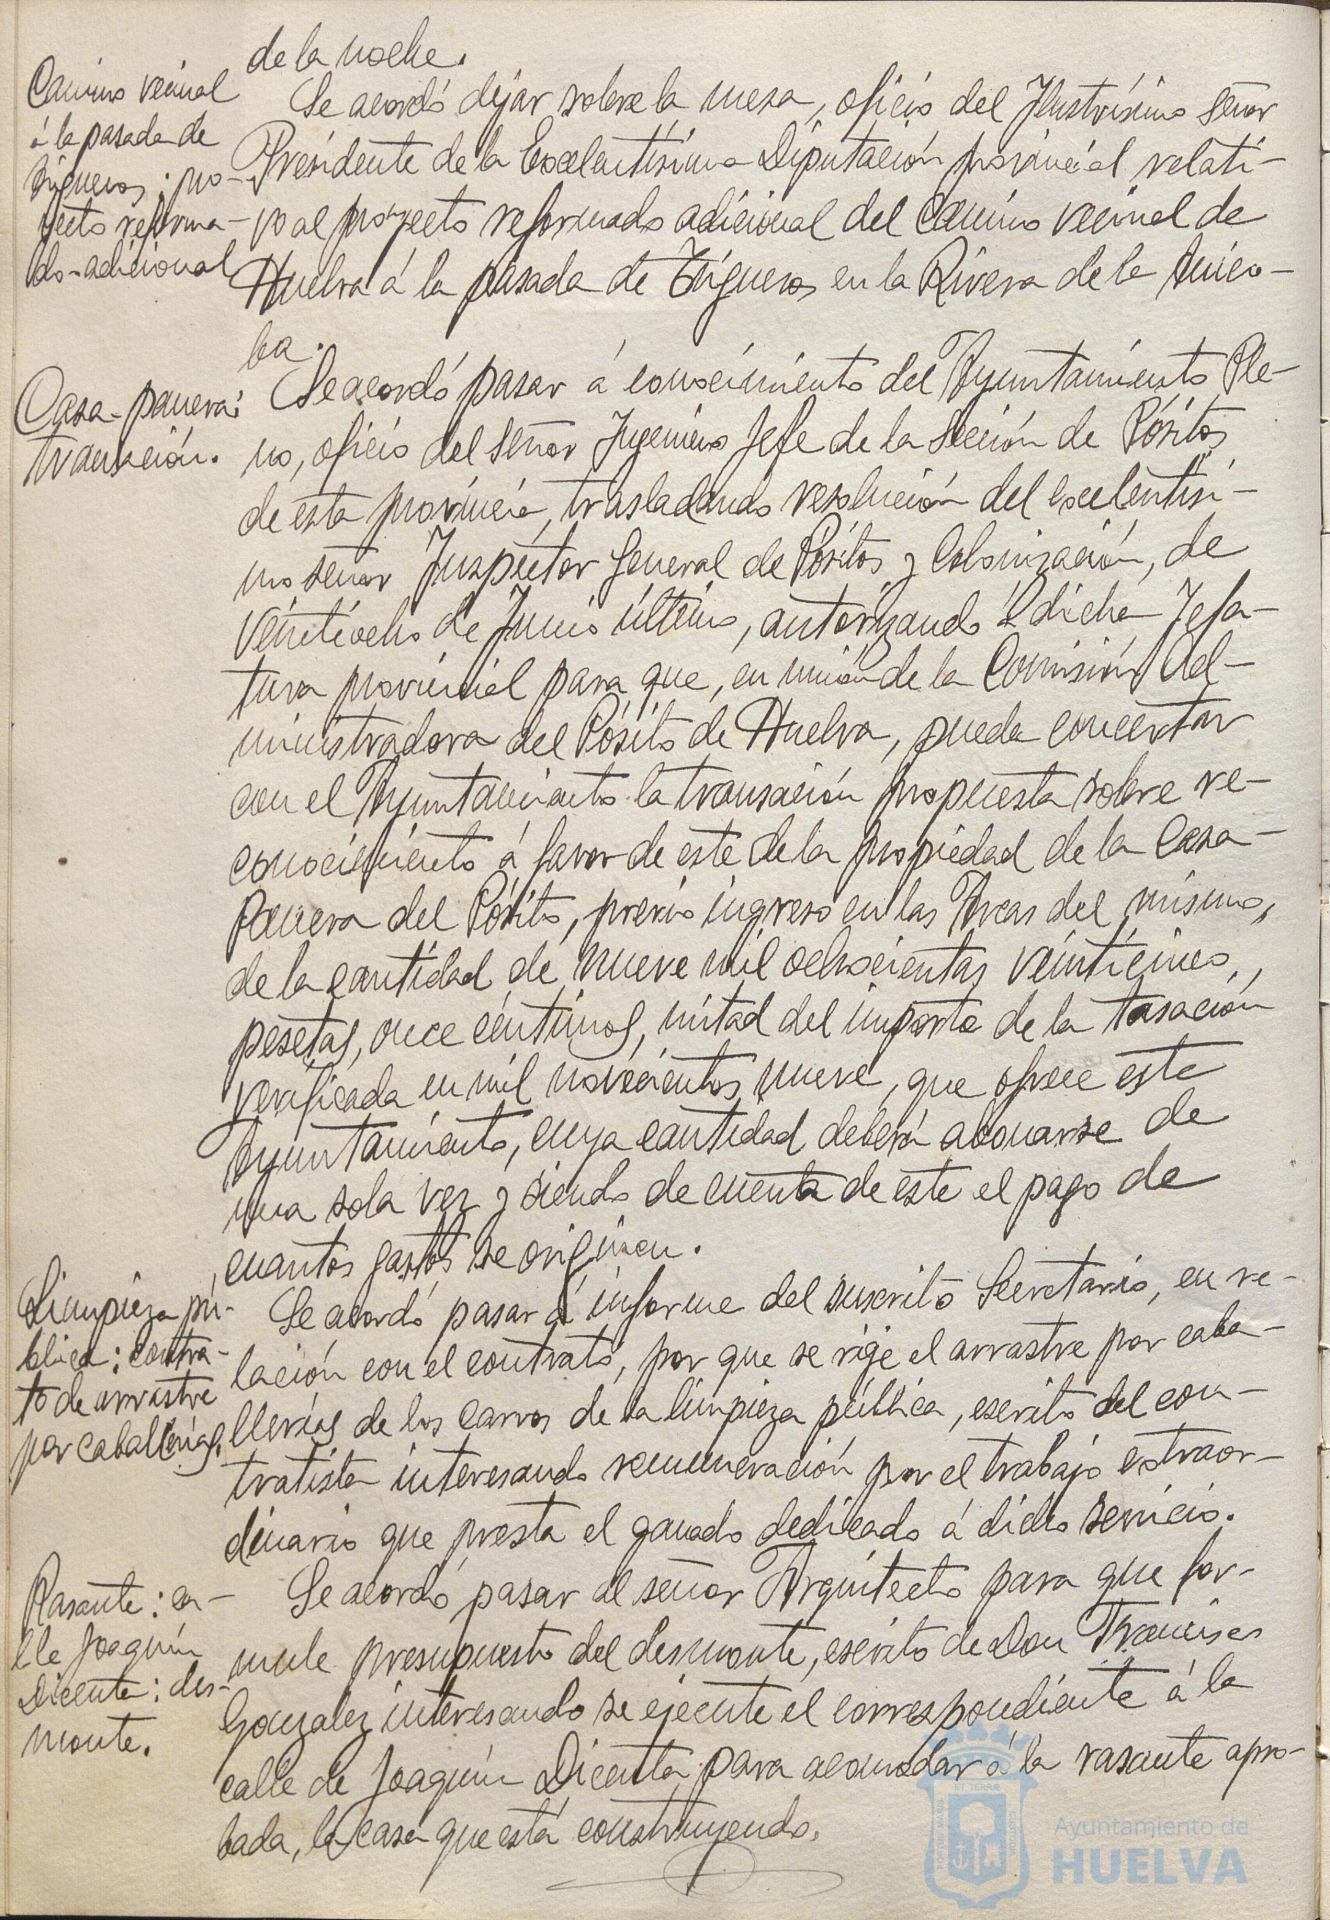 de la noche.
Camino vecinal
á la pasada de
Trigueros: pro-
yecto reforma-
do-adicional
Se acordó dejar sobre la mesa, oficio del Ilustrísimo señor
Presidente de la Excelentísima Diputación provincial relati-
vo al proyecto reformado adicional del camino vecinal de
Huelva á la pasada de Trigueros en la Rivera de la Nico-
ba.
Casa-panera:
transación.
Se acordó pasar á conocimiento del Ayuntamiento Ple-
no, oficio del señor Ingeniero Jefe de la Sección de Pósitos
de esta provincia, trasladando resolución del excelentísi-
mo señor Inspector General de Pósitos y Colonización, de
veintiocho de Junio último, autorizando á dicha Jefa-
tura provincial para que, en unión de la Comisión Ad-
ministradora del Pósito de Huelva, pueda concertar
con el Ayuntamiento la transación propuesta sobre re-
conocimiento á favor de este de la propiedad de la Casa-
Panera del Pósito, previo ingreso en las Arcas del mismo,
de la cantidad de nueve mil ochocientas veinticinco,
pesetas, once céntimos, mitad del importe de la tasación
verificada en mil novecientos nueve, que ofrece este
Ayuntamiento, cuya cantidad deberá abonarse de
una sola vez y siendo de cuenta de este el pago de
cuantos gastos se originen.
Limpieza pú-
blica: contra-
to de arrastre
por caballerías.
Se acordó pasar á informe del suscrito Secretario, en re-
lación con el contrato, por que se rige el arrastre por caba-
llerías de los carros de la limpieza pública, escrito del con-
tratista interesando remuneración por el trabajo extraor-
dinario que presta el ganado dedicado á dicho servicio.
Rasante: ca-
lle Joaquín
Dicenta: des-
monte.
Se acordó pasar al señor Arquitecto para que for-
mule presupuesto del desmonte, escrito de Don Francisco
Gonzalez interesando se ejecute el correspondiente á la
calle de Joaquín Dicenta para acomodar á la rasante apro-
bada, la casa que está construyendo.
Ayuntamiento de
HUELVA